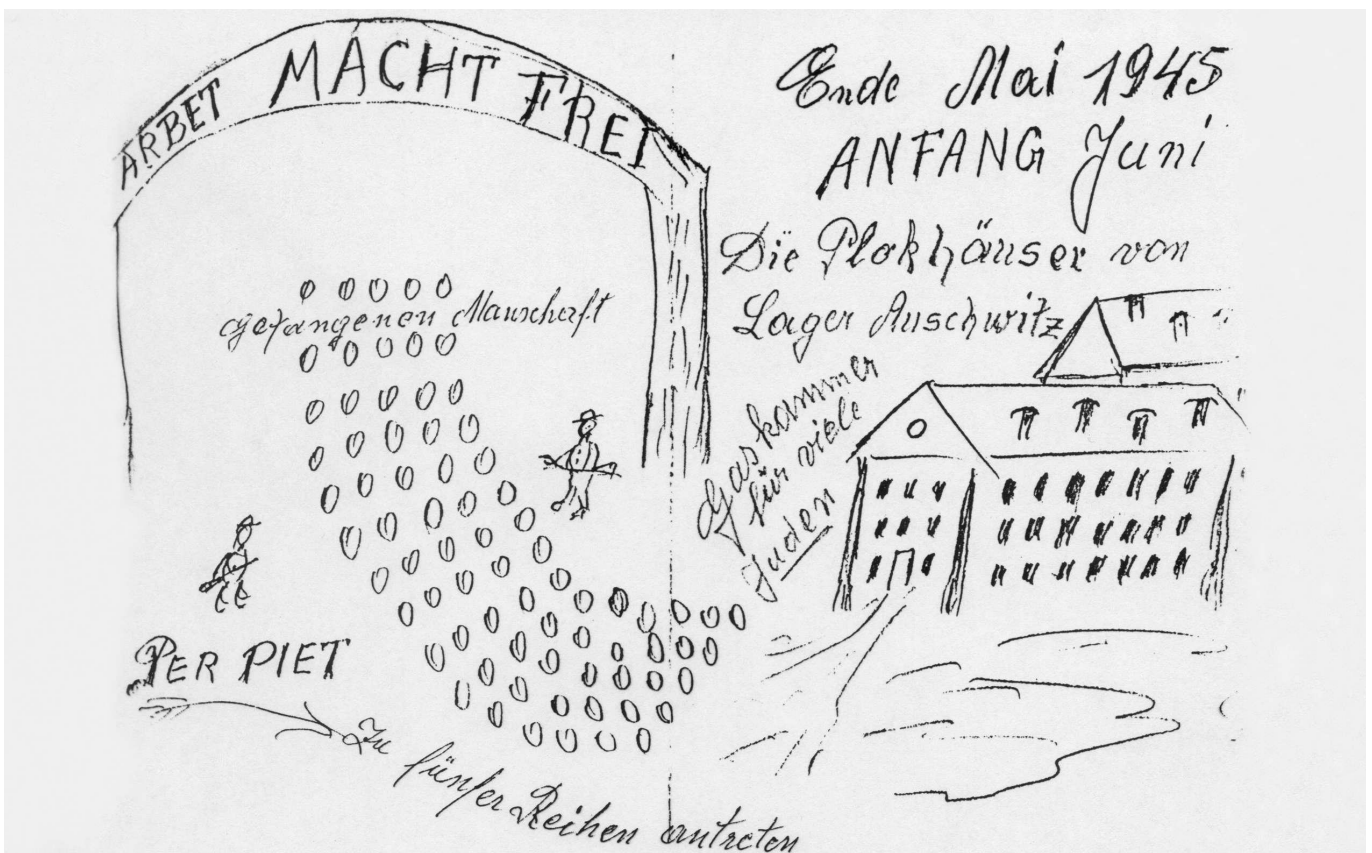 ARBET MACHT FREI
Ende Mai 1945
ANFANG Juni
Die Plokhäuser von
Lager Auschwitz
gefangenen Manschaft
Gaskammer
für viele
Juden
PER PIET
Zu fünfer Reihen antreten